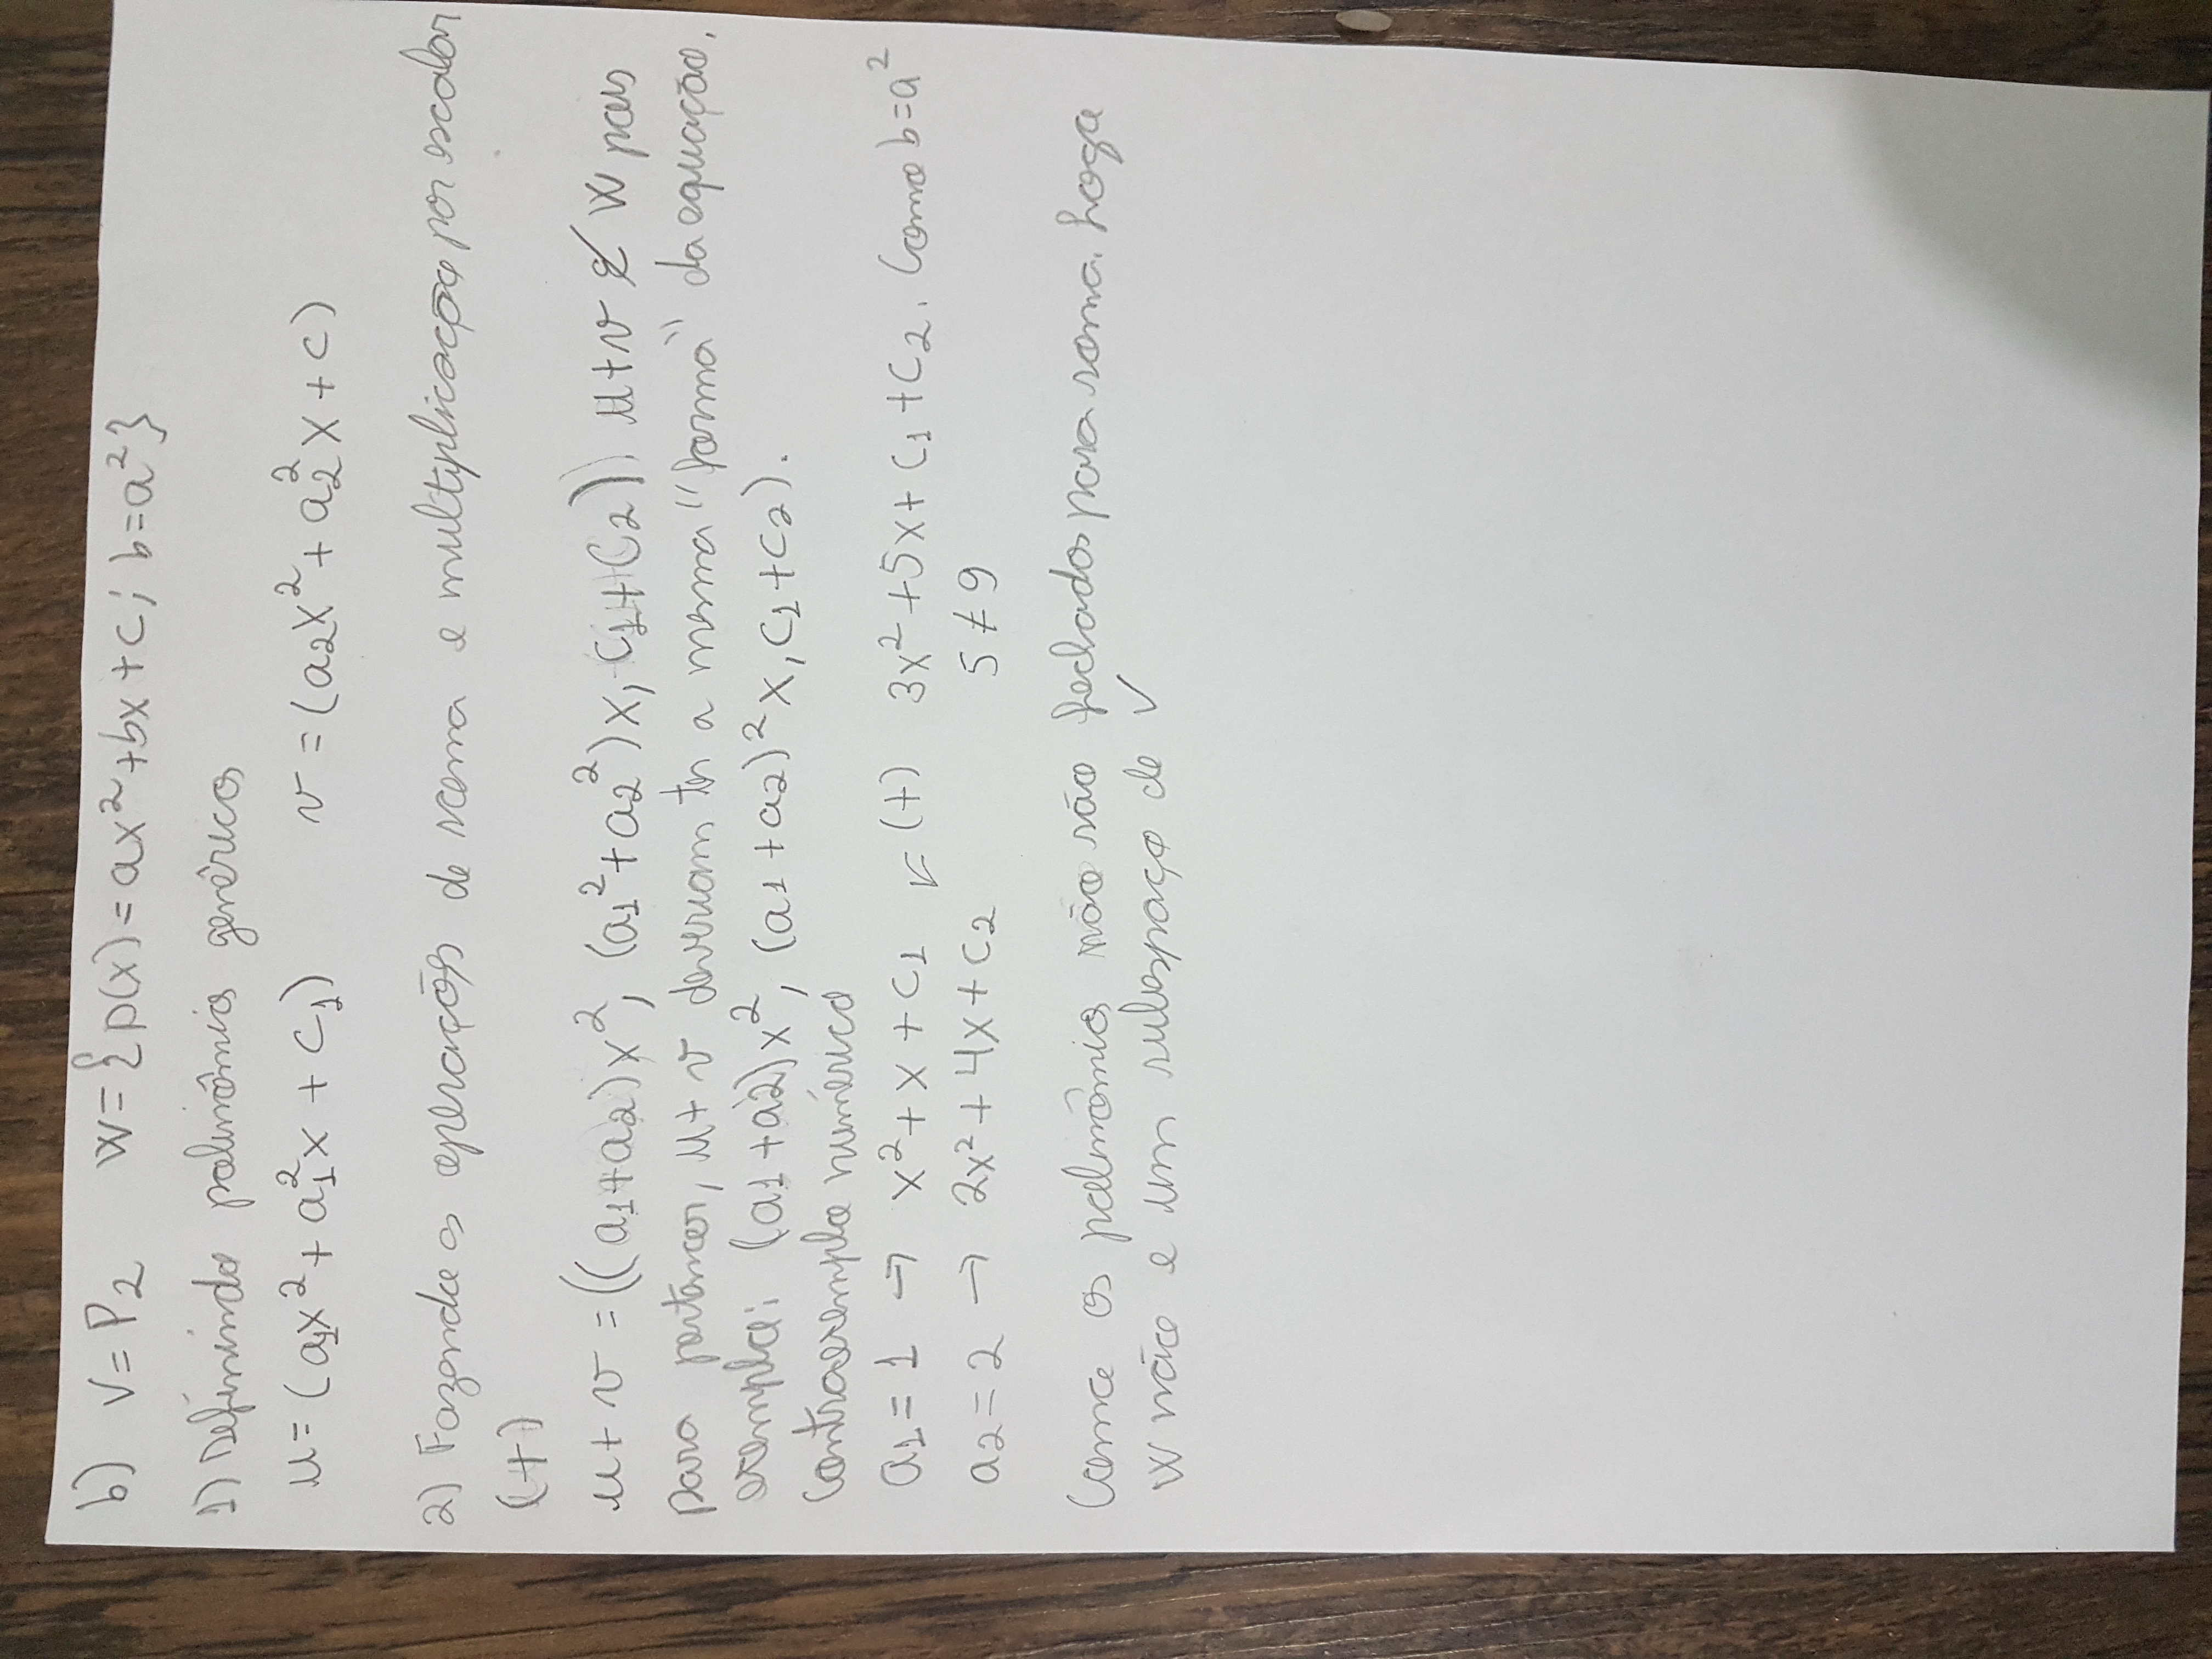 b) V = P2 W = {p(x) = ax² + bx + c; b = a²}
1) Definindo polinômios genéricos
u = (a₁x² + a₁²x + c₁) v = (a₂x² + a₂²x + c)
2) Fazendo as operações de soma e multiplicação por escalar
(+)
u + v = ((a₁+a₂)x², (a₁²+a₂²)x, c₁+c₂) u+v ∉ W pois
para pertencer, u+v deveriam ter a mesma "forma" da equação.
exemplo: (a1+a2)x², (a1+a2)²x, c₁+c₂).
Contraexemplo numérico
a₁ = 1 → x² + x + c₁ ↙ (+) 3x² + 5x + c₁ + c₂. Como b = a²
a₂ = 2 → 2x² + 4x + c₂ 5 ≠ 9
Como os polinômios não são fechados para soma. Logo
W não e um subespaço de V